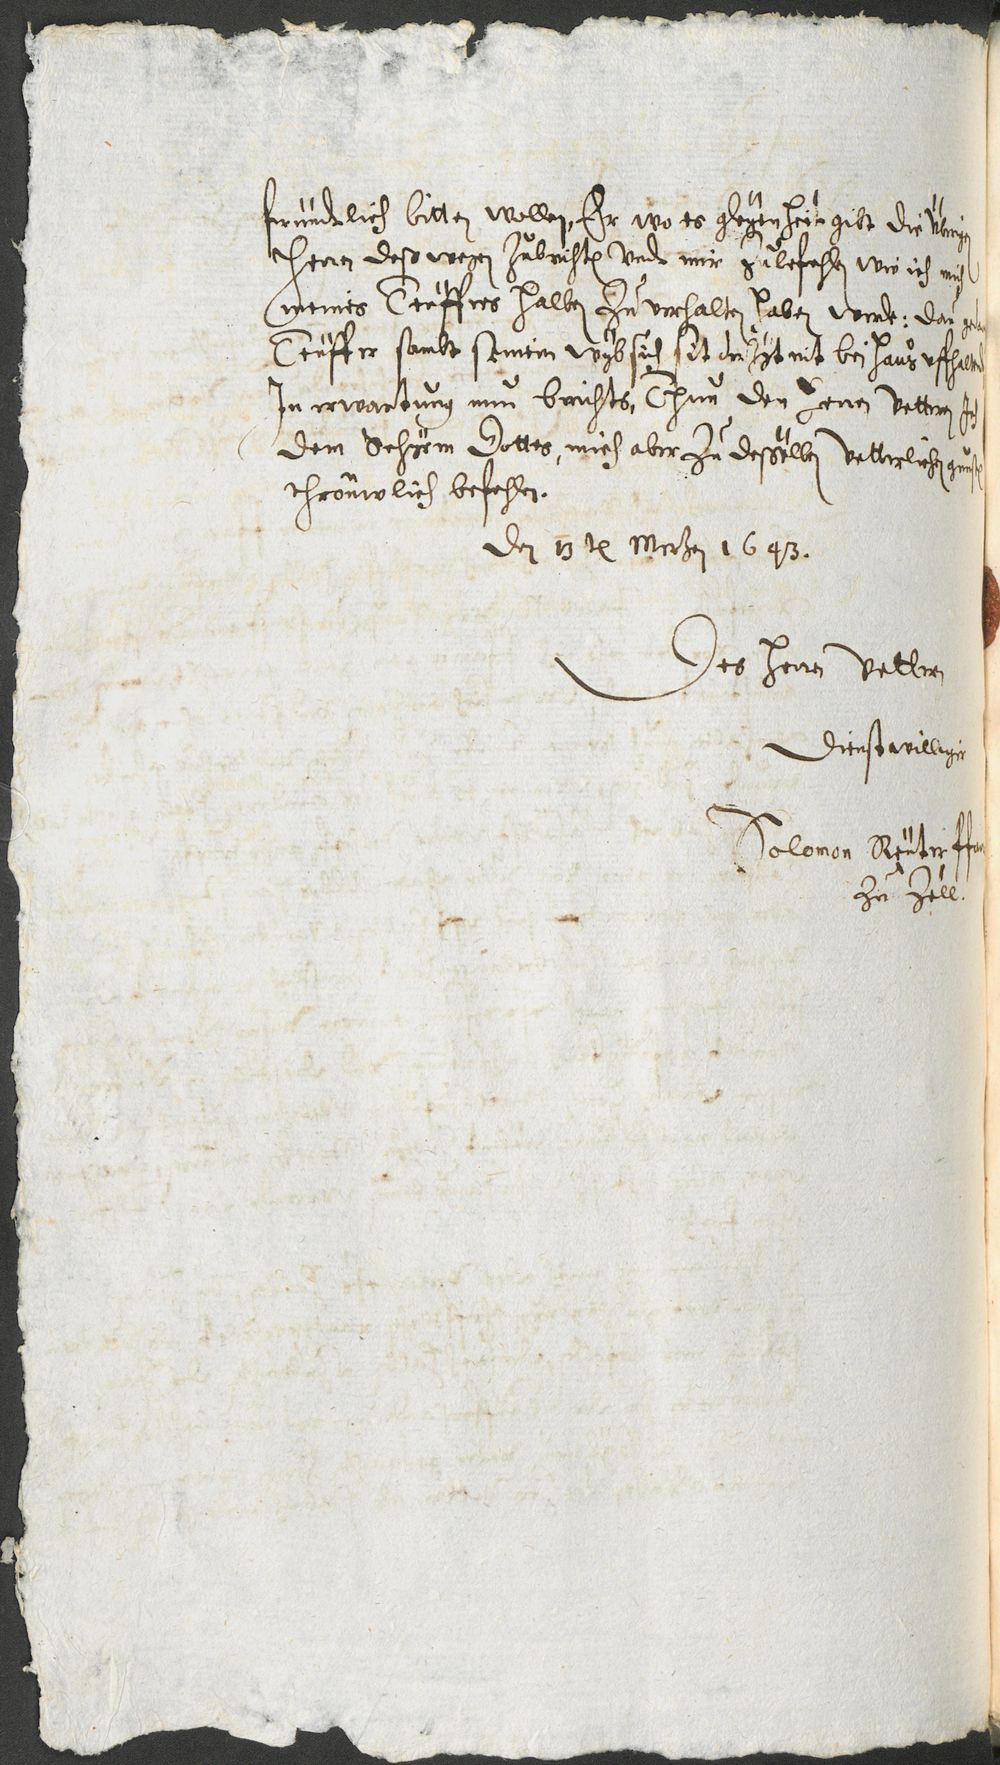 fründtlich bitten wollen, Er wo es glegenheit gibt die übrigen
Herren desswegen zubrichten vnd mir zu befehlen wie ich mich
meines Teüffers halben zu verhalten haben werde: dan
Teüffer sambt seinem wyb sich sit der zyt nit bei haus vffhaltend
In erwartung nun brichts, Thun den Herren Vetteren Ich
dem Schyrm Gottes, mich aber zu desselben Vetterlichen gunsten
threüwlich befehlen.
Den 13 ten Mertzen 1643.
Des Herren Vetteren
Dienstwilliger
Solomon Reüter
zu Zell.